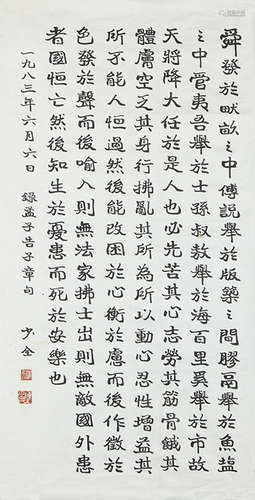 舜發於畎畝之中傅說舉於版築之間膠鬲舉於魚鹽
之中管夷吾舉於士孫叔敖舉於海百里奚舉於市故
天將降大任於是人也必先苦其心志勞其筋骨餓其
體膚空乏其身行拂亂其所為所以動心忍性增益其
所不能人恒過然後能改困於心衡於慮而後作徵於
色發於聲而後喻入則無法家拂士出則無敵國外患
者國恒亡然後知生於憂患而死於安樂也
一九八三年六月六日 錄孟子告子章句 少全